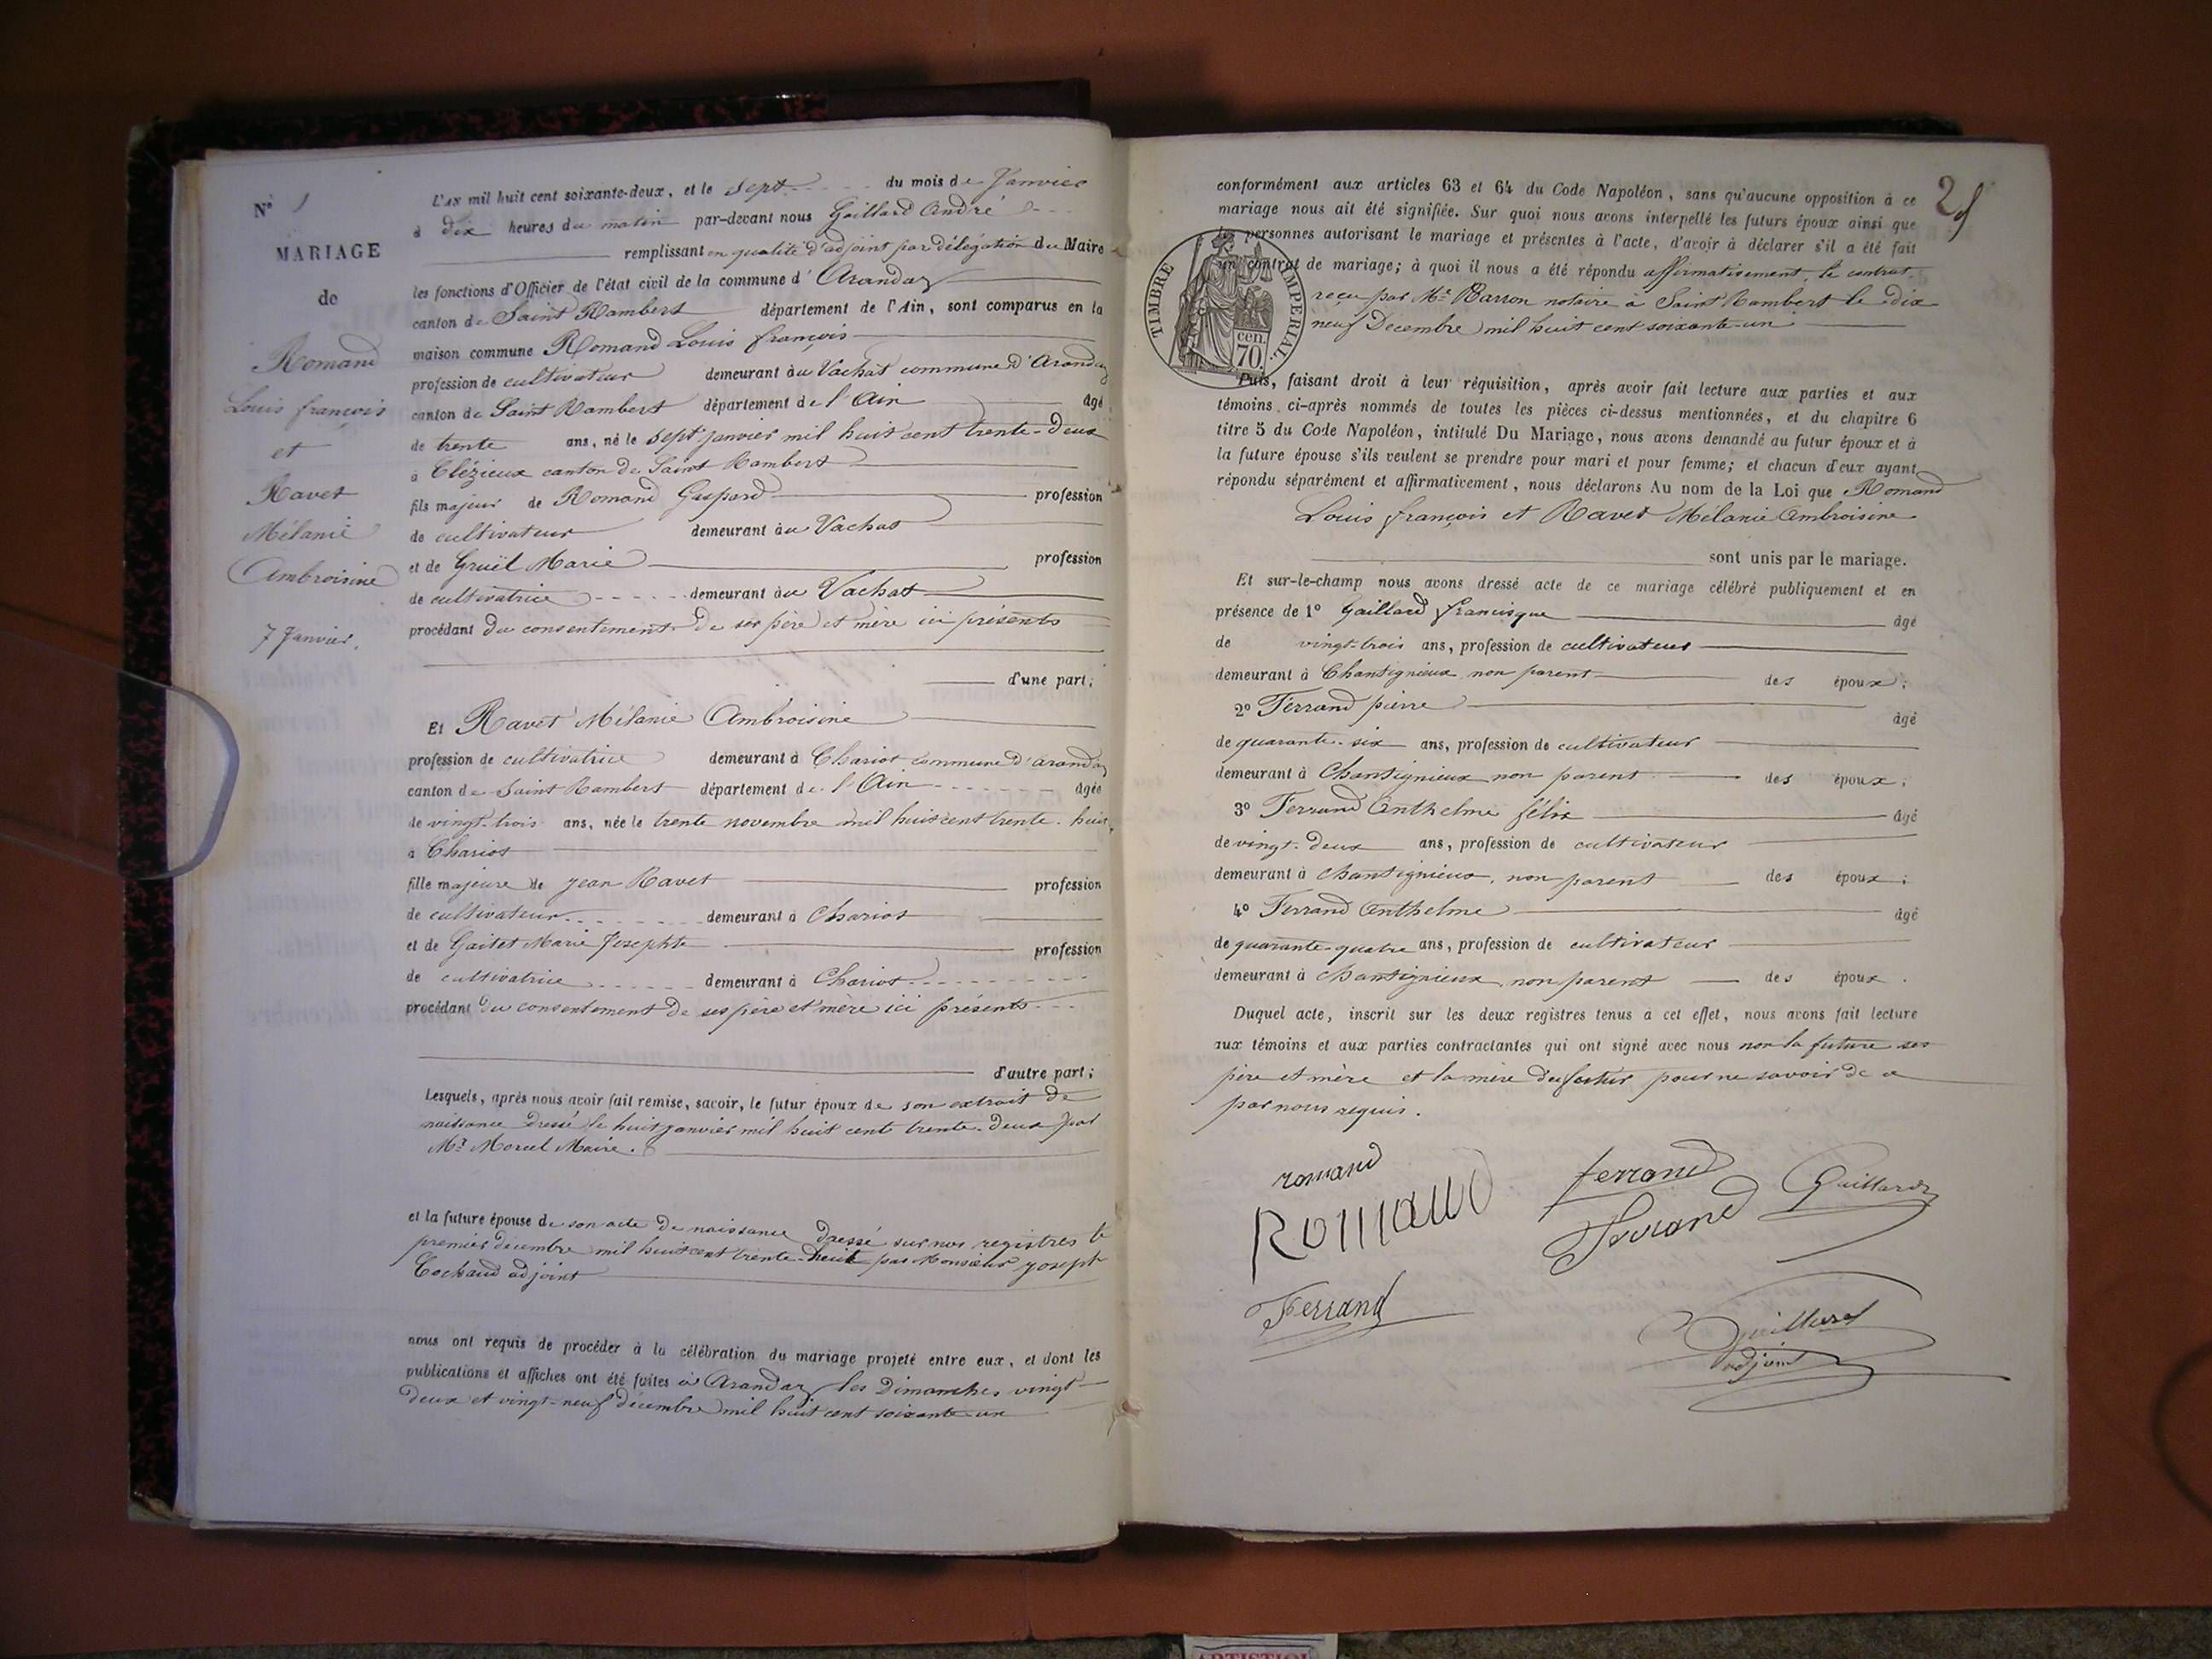 N° 1
MARIAGE
de
Romand
Louis françois
et
Ravet
Mélanie
Ambroisine
7 Janvier.
L'AN mil huit cent soixante-deux, et le Sept du mois de Janvier
à dix heures du matin par-devant nous Gaillard André
remplissant en qualité d'adjoint par délégation du Maire
les fonctions d'Officier de l'état civil de la commune d' Arandaz
canton de Saint Rambert département de l'Ain, sont comparus en la
maison commune Romand Louis françois
profession de cultivateur demeurant au Vachat commune d'Arandaz
canton de Saint Rambert département de l'Ain âgé
de trente ans, né le sept janvier mil huit cent trente-deux
à Clézieux canton de Saint Rambert
fils majeur de Romand Gaspard profession
de cultivateur demeurant au Vachat
et de Gruël Marie profession
de cultivatrice demeurant au Vachat
procédant du consentement de ses père et mère ici présents
d'une part;
Et Ravet Mélanie Ambroisine
profession de cultivatrice demeurant à Chariot commune d'arandaz
canton de Saint Rambert département de l'Ain âgée
de vingt-trois ans, née le trente novembre mil huit cent trente-huit
à Chariot
fille majeure de jean Ravet profession
de cultivateur demeurant à Chariot
et de Gaitet Marie Josephte profession
de cultivatrice demeurant à Chariot
procédant du consentement de ses père et mère ici présents
d'autre part;
Lesquels, après nous avoir fait remise, savoir, le futur époux de son extrait de
naissance dressé le huit janvier mil huit cent trente-deux par
Mr Morcel Maire.
et la future épouse de son acte de naissance dressé sur nos registres le
premier décembre mil huit cent trente-huit par Monsieur joseph
Cochaud adjoint
nous ont requis de procéder à la célébration du mariage projeté entre eux, et dont les
publications et affiches ont été faites à Arandaz les Dimanches vingt-
deux et vingt-neuf décembre mil huit cent soixante-un
2
conformément aux articles 63 et 64 du Code Napoléon, sans qu'aucune opposition à ce
mariage nous ait été signifiée. Sur quoi nous avons interpellé les futurs époux ainsi que
les personnes autorisant le mariage et présentes à l'acte, d'avoir à déclarer s'il a été fait
un contrat de mariage; à quoi il nous a été répondu affirmativement, le contrat
reçu par Me Barron notaire à Saint Rambert le dix
neuf Décembre mil huit cent soixante-un
TIMBRE IMPERIAL.
cen.
70.
Puis, faisant droit à leur réquisition, après avoir fait lecture aux parties et aux
témoins ci-après nommés de toutes les pièces ci-dessus mentionnées, et du chapitre 6
titre 5 du Code Napoléon, intitulé Du Mariage, nous avons demandé au futur époux et à
la future épouse s'ils veulent se prendre pour mari et pour femme; et chacun d'eux ayant
répondu séparément et affirmativement, nous déclarons Au nom de la Loi que Romand
Louis françois et Ravet Mélanie Ambroisine
sont unis par le mariage.
Et sur-le-champ nous avons dressé acte de ce mariage célébré publiquement et en
présence de 1° Gaillard francisque âgé
de vingt-trois ans, profession de cultivateur
demeurant à Chantignieux non parent des époux;
2° Ferrand pierre âgé
de quarante-six ans, profession de cultivateur
demeurant à Chantignieux non parent des époux;
3° Ferrand Anthelme félix âgé
de vingt-deux ans, profession de cultivateur
demeurant à chantignieux, non parent des époux;
4° Ferrand Anthelme âgé
de quarante-quatre ans, profession de cultivateur
demeurant à chantignieux, non parent des époux.
Duquel acte, inscrit sur les deux registres tenus à cet effet, nous avons fait lecture
aux témoins et aux parties contractantes qui ont signé avec nous non la future ses
père et mère et la mère du futur pour ne savoir de ce
par nous requis.
romand
Romand
ferrand
Ferrand
Gaillard
Ferrand
Gaillard
adjoint